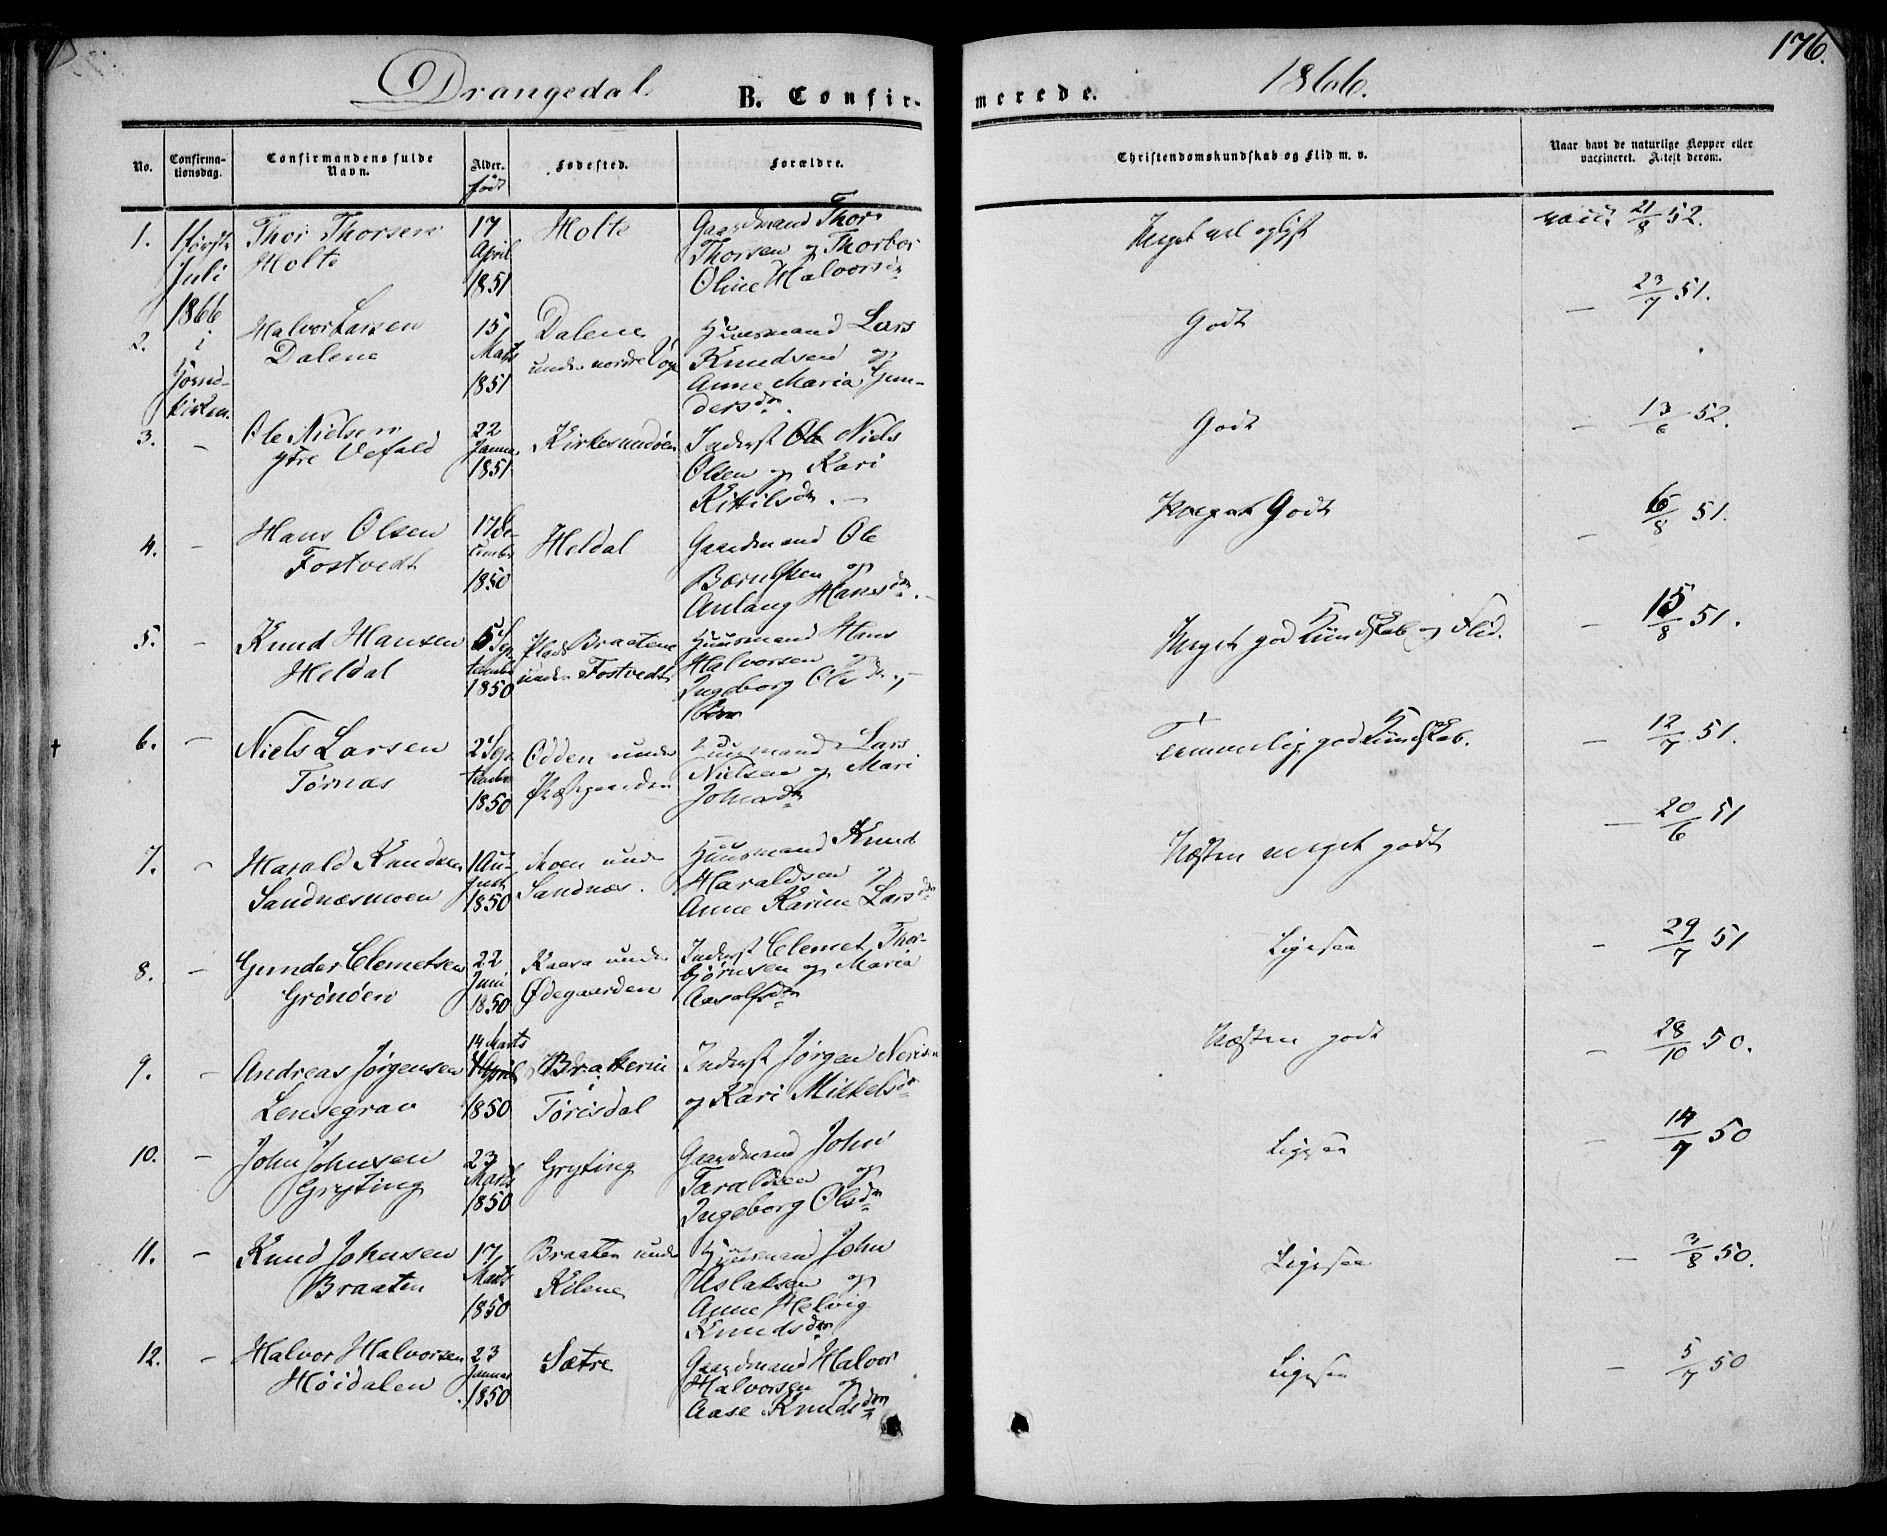 Drangedal.
B. Confir-
merede.
1866.
176.
No.
Confirma-
tionsdag.
Confirmandens fulde
Navn.
Alder.
født
Fødested.
Forældre.
Christendomskundskab og Flid m. v.
Naar havt de naturlige Kopper eller
vaccineret. Attest derom.
1.
Juli
1866
i
Thor Thorsen
Holte
17
April
1851
Holte
Gaardmand Thor
Thorsen og Thorbor
Oline Halvorsdr
Meget vel oplyst
vacc. 21/8 52.
2.
Halvor Larsen
Dalene
15
Marts
1851
Dalene
under nordre
Huusmand Lars
Knudsen og
Anne Maria Gun-
dersdr.
Godt
— 23/7 51.
3. —
Ole Nielsen
ytre Vefald
22
Januar
1851
Kirkesundøen
Inderst Ole Niels
Olsen og Kari
Kittilsdr. —
Godt
— 13/6 52.
4. —
Hans Olsen
Fostvedt
17 De-
cember
1850
Heldal
Gaardmand Ole
og
Anlaug Hansdr. —
Meget Godt
— 6/8 51.
5. —
Knud Hansen
Heldal
5 Sep-
tember
1850
Plads Braatene
under Fostvedt
Huusmand Hans
Halvorsen og
Ingeborg Olsdr. —
Meget god Kundskab og Flid.
— 15/8 51.
6. —
Niels Larsen
Tørnæs
2 Sep-
tember
1850
Odden under
Præstgaarden
Huusmand Lars
Nielsen og Mari
Johnsdr
Temmelig god Kundskab.
— 12/7 51.
7. —
Harald Knudsen
Sandnæsmoen
1 Au-
gust
1850
Moen under
Sandnæs.
Huusmand Knud
Haraldsen og
Anne Karine Larsdr
Næsten meget godt
— 20/6 51
8. —
Gunder Clemetsen
Grönöen
22
Juni
1850
Kaasa under
Ødegaarden
Inderst Clemet Thor-
bjørnsen og Maria
Aasolfsdr
Ligesaa
— 29/7 51
9. —
Andreas Jørgensen
Lensegrav
14 Marts
April
1850
i
Tørisdal
Inderst Jørgen Nerisen
og Kari Mikkelsdr
Næsten godt
— 28/10 50.
10. —
John Johnsen
Gryting
23
Marts
1850
Gryting
Gaardmand John
Taraldsen og
Ingeborg Olsdr
Ligesaa
— 14/7 50
11. —
Knud Johnsen
Braaten
17
Marts
1850
Braaten under
Kilene
Huusmand John
Aslaksen og
Anne Helvig
Knudsdr
Ligesaa
— 3/8 50.
12. —
Halvor Halvorsen
Høidalen
23
Januar
1850
Sætre
Gaardmand Halvor
Halvorsen og
Aase Knudsdr
Ligesaa
— 5/7 50